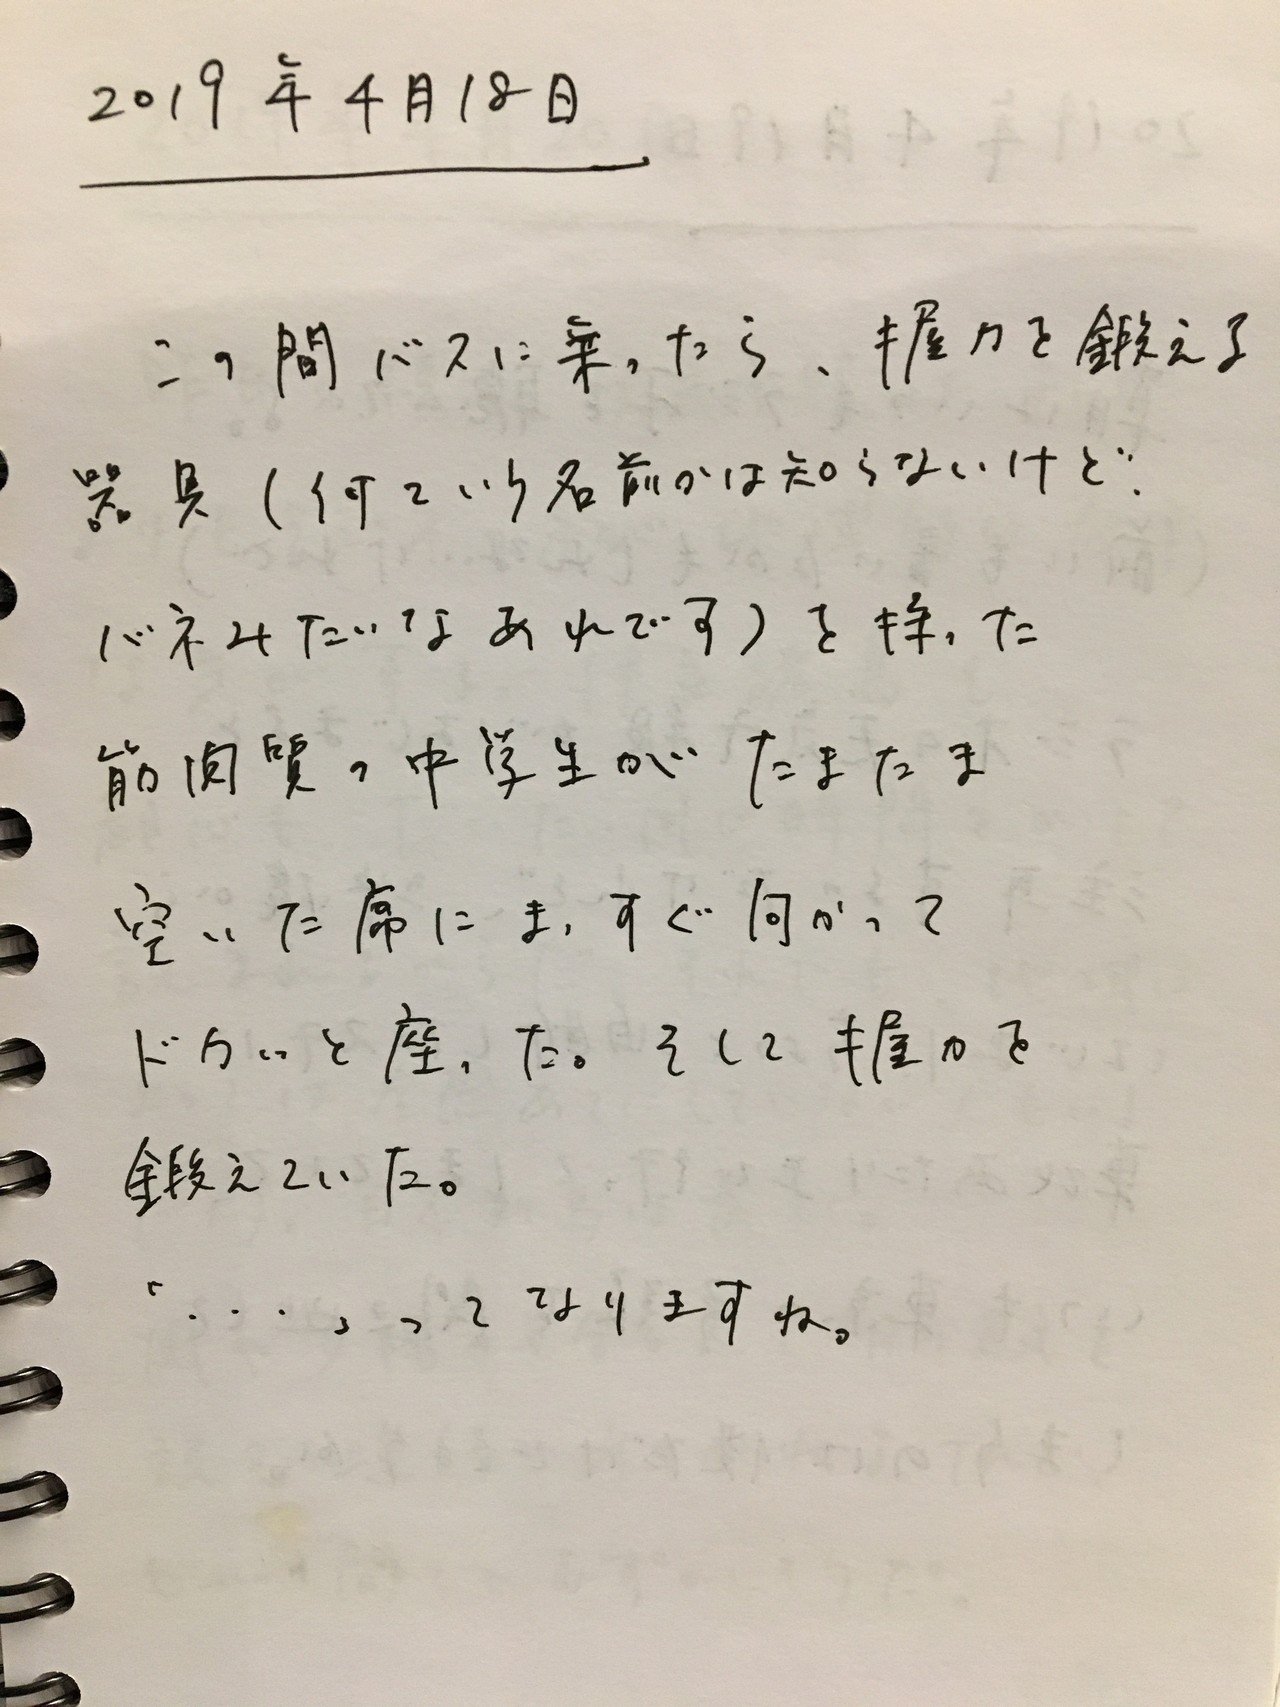 2019年4月18日
この間バスに乗ったら、握力を鍛える
器具(何ていう名前かは知らないけど、
バネみたいなあれです)を持った
筋肉質の中学生がたまたま
空いた席にまっすぐ向かって
ドカッと座った。そして握力を
鍛えていた。
「・・・」ってなりますね。